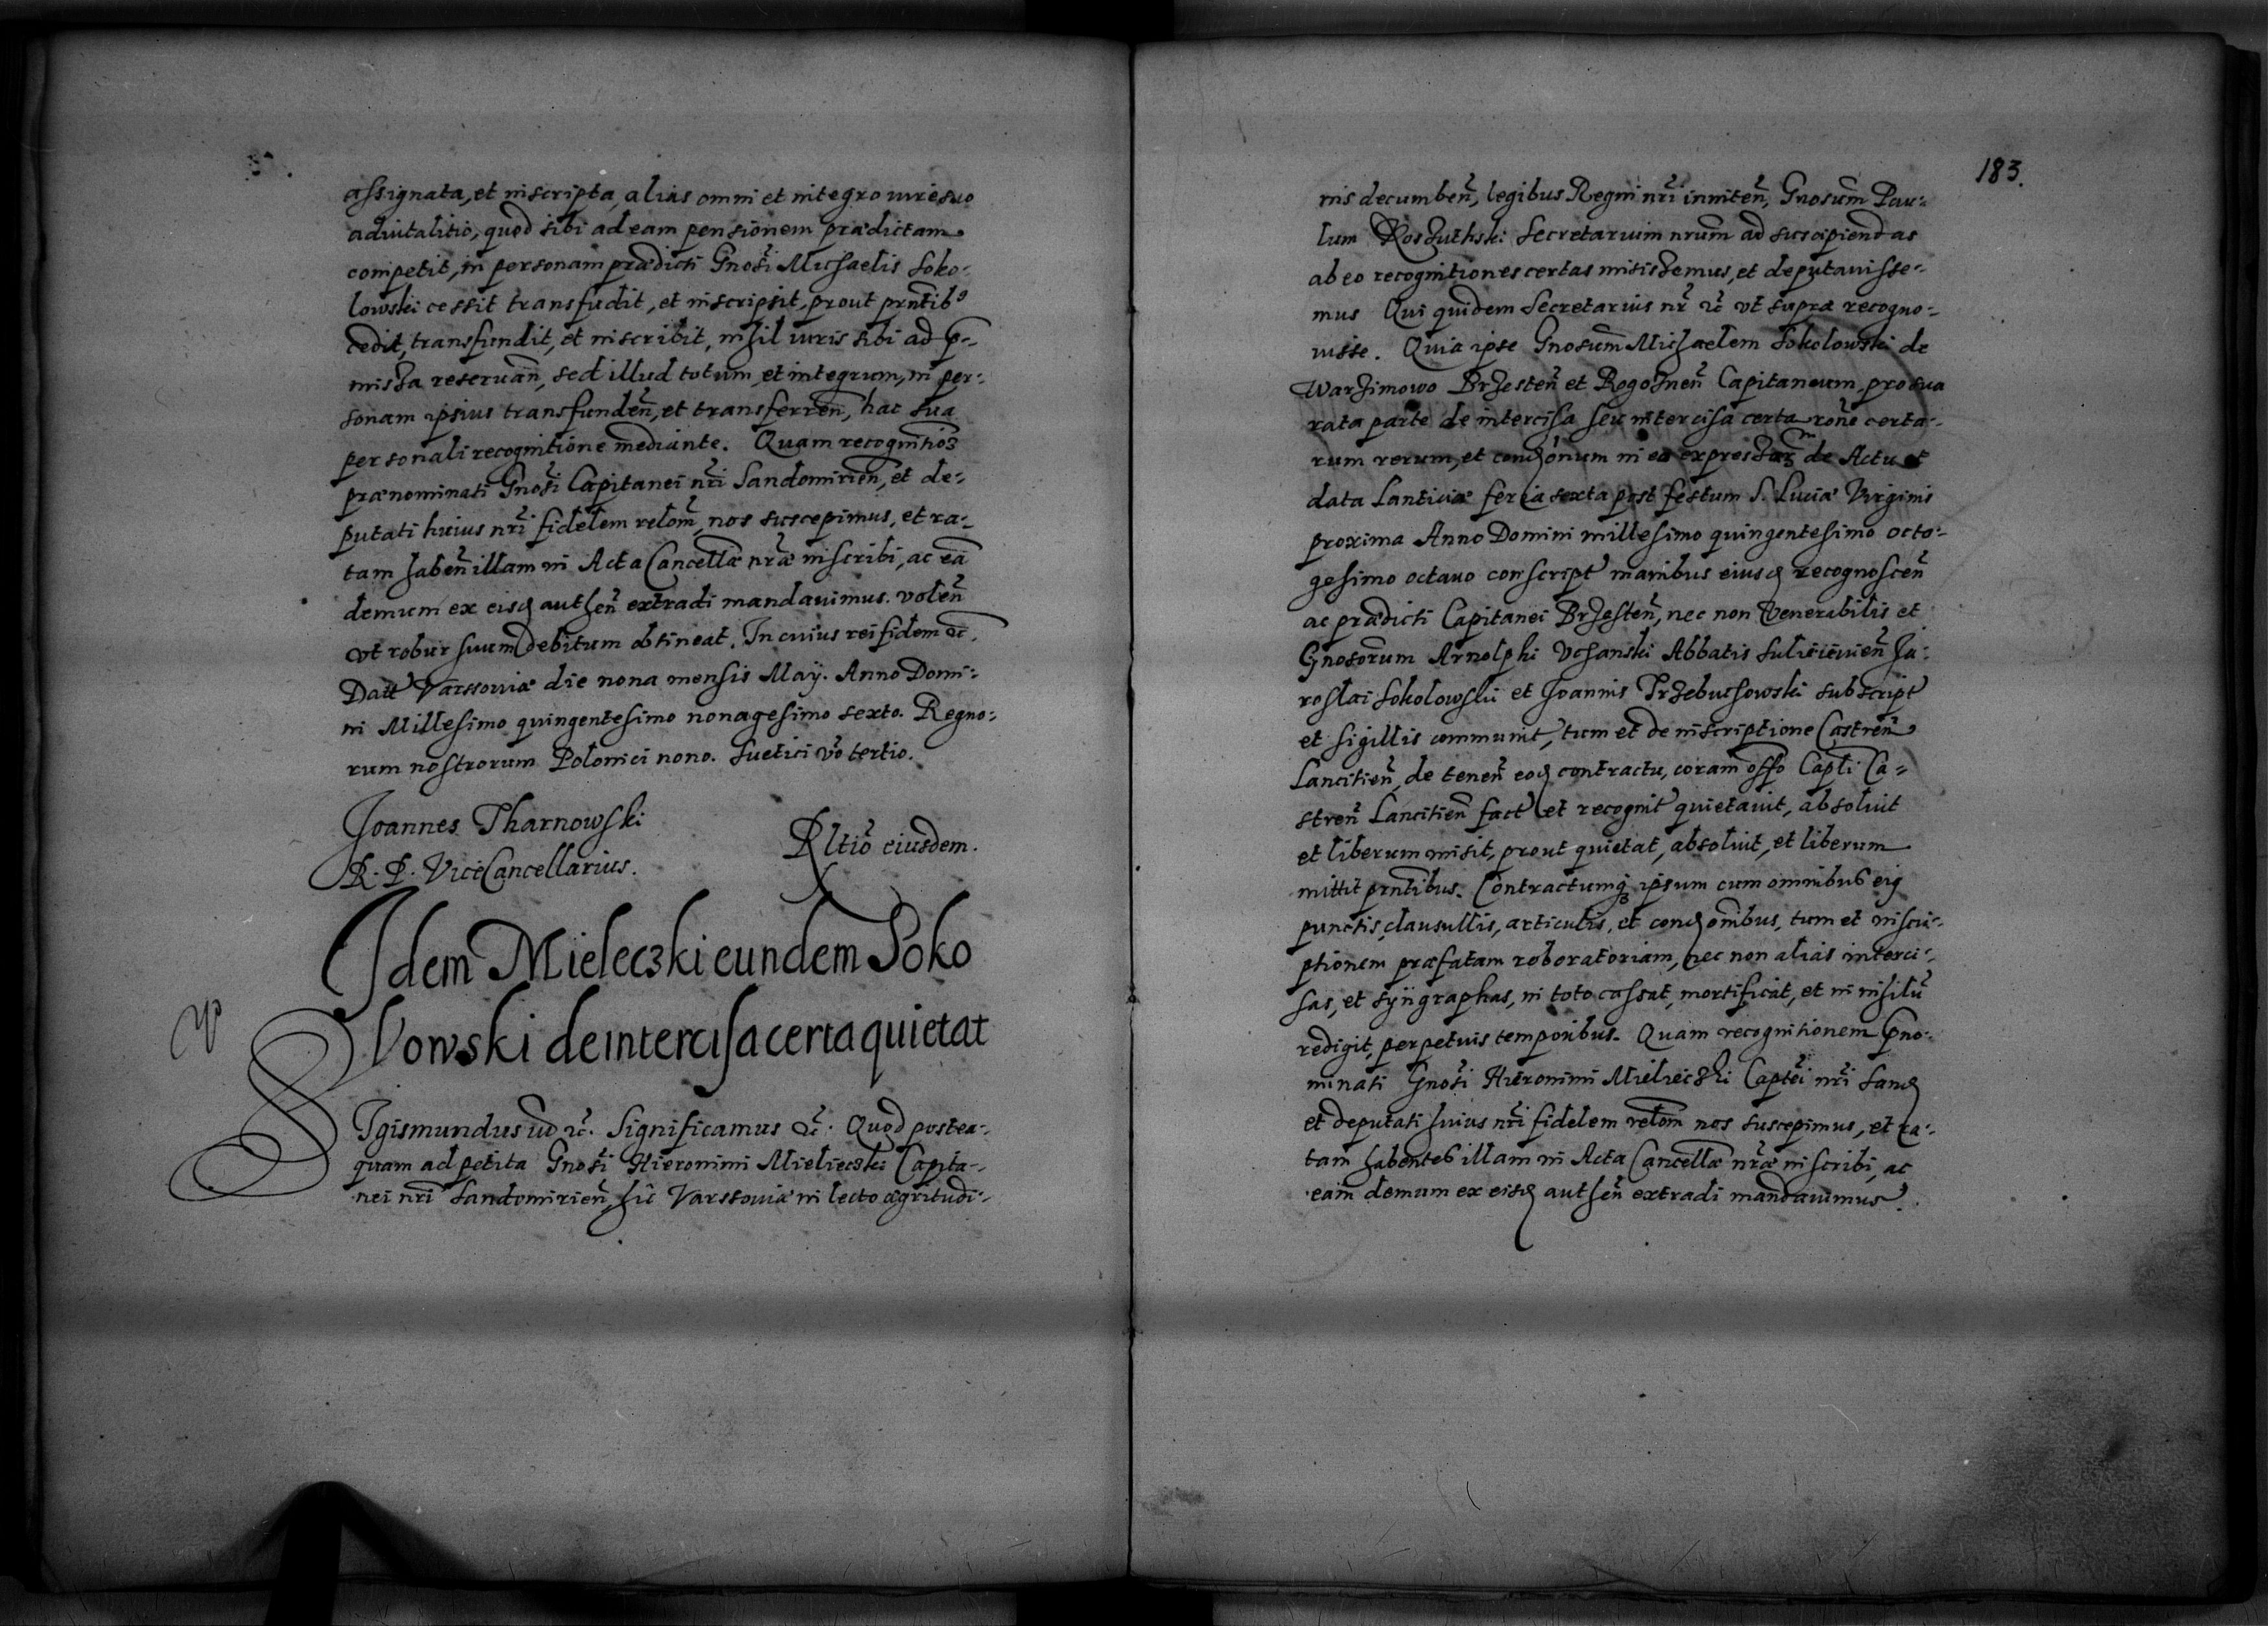 assignata, et inscripta, alias omni et integro iure suo
advitalitio, quod sibi ad eam pensionem prædictam
competit, in personam prædicti Gnosi Michaelis Soko-
lowski cessit transfudit, et inscripsit, prout prntib9
cedit, transfundit, et inscribit, nihil iuris sibi ad p-
missa reseruañ, sed illud totum, et integrum, in per-
sonam ipsius transfundeñ, et transferreñ, hac sua
personali recognitione mediante. Quam recognitioз
prænominati Gnosi Capitanei nri Sandomirieñ, et de-
putati huius nri fidelem relom̃, nos suscepimus, et ra-
tam habeñ illam in Acta Cancellæ nræ inscribi, ac eã
demum ex eisd autheñ extradi mandauimus. voleñ
vt robur suum debitum obtineat. In cuius rei fidem &c.
Datt Varssouiæ die nona mensis Maÿ. Anno Domi-
ni Millesimo quingentesimo nonagesimo sexto. Regno-
rum nostrorum Polonici nono. Suetici vo tertio.
Joannes Tharnowski
R. P. ViceCancellarius.
Rltio eiusdem.
Idem Mieleczki eundem Soko
lowski de intercisa certa quietat
SIgismundus iii &c. Significamus &c. Quod postea-
quam ad petita Gnosi Hieronimi Mieliecski Capita-
nei nri Sandomirieñ, hic Varssouiæ in lecto ægritudi-
183.
nis decumbeñ, legibus Regni nri inniteñ, Gnosum Pau-
lum Roszuthski Secretarium nrum ad suscipiendas
ab eo recognitiones certas misissemus, et deputauisse-
mus Qui quidem Secretarius nr &c vt supra recogno-
uisse. Quia ipse Gnosum Michaelem Sokolowski de
Warzimowo Brzesteñ et Rogozneñ Capitaneum, pro sua
rata parte de intercisa seu intercisa certa rone certa-
rum rerum, et condonum in ea expressaz de Actu et
data Lanticiæ feria sexta post festum S. Luciæ Virginis
proxima Anno Domini millesimo quingentesimo octo-
gesimo octauo conscript manibus eiusd recognosceñ
ac prædicti Capitanei Brzesteñ, nec non Venerabilis et
Gnosorum Arnolphi Vchanski Abbatis Sulieiouieñ Ja-
roslai Sokolowski et Joannis Trzebuchowski subscript
et sigillis communit, tum et de inscriptione Castreñ
Lancitieñ, de teneñ eod contractu, coram offo Capli Ca-
streñ Lancitieñ fact et recognit quietauit, absoluit
et liberum misit, prout quietat, absoluit, et liberum
mittit prntibus. Contractumq ipsum cum omnibus eig
punctis, clausullis, articulis, et condonibus, tum et inscri-
ptionem præfatam roboratoriam, nec non alias interci-
sas, et syngraphas, in toto cassat, mortificat, et in nihilũ
redigit, perpetuis temporibus. Quam recognitionem pno-
minati Gnosi Hieronimi Mielieczki Captei nri Sand
et deputati huius nri fidelem relom nos suscepimus, et ra-
tam habentes illam in Acta Cancellæ nræ inscribi, ac
eam demum ex eisd autheñ extradi mandauimus.